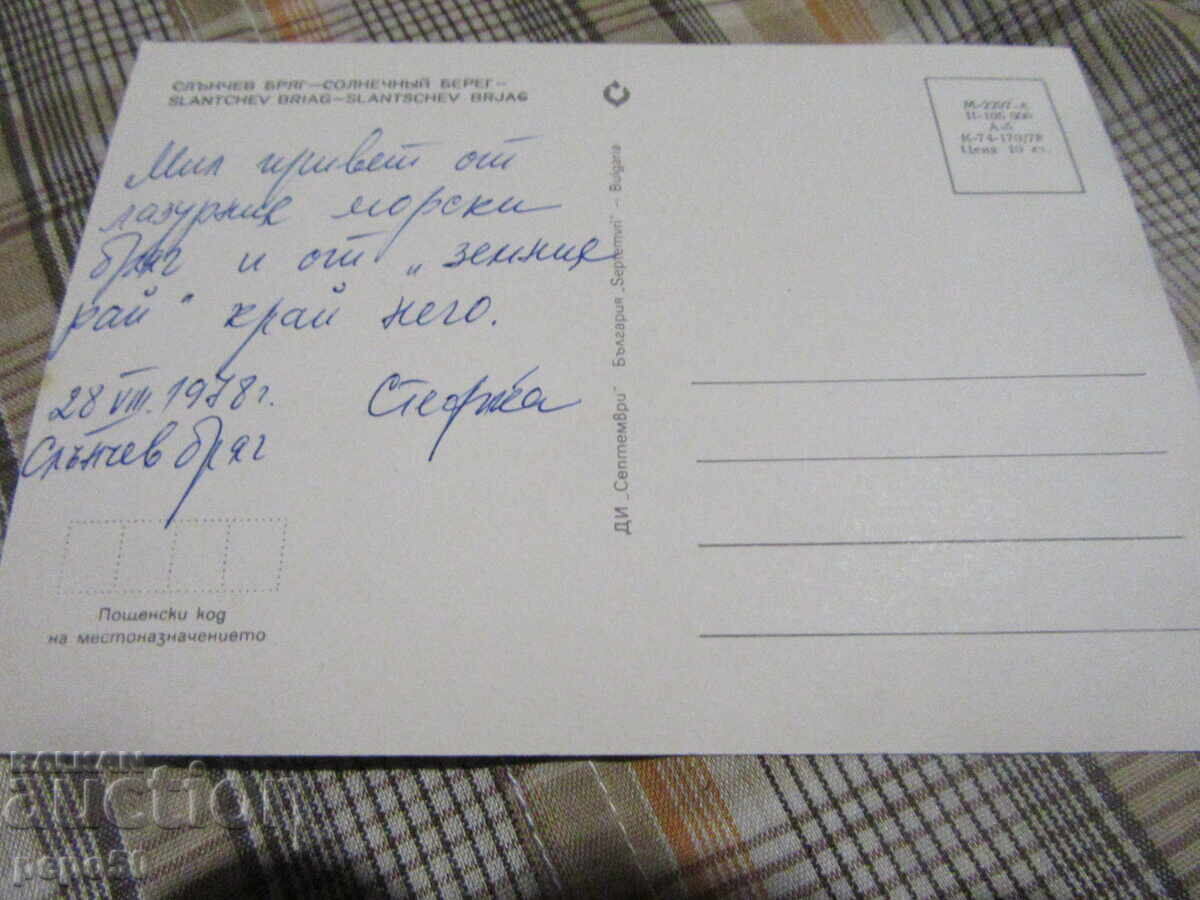 СЛЪНЧЕВ БРЯГ—СОЛНЕЧНЫЙ БЕРЕГ—
SLANTCHEV BRIAG—SLANTSCHEV BRJAG
Мил привет от
лазурния морски
бряг и от „земния
рай" край него.
28 VIII. 1978 г.
Слънчев бряг
Пощенски код
на местоназначението
ДИ „Септември" България „Septemvri" — Bulgaria
А-6
К-74-170/78
Цена 10 ст.
BALKAN
auction
pepo51